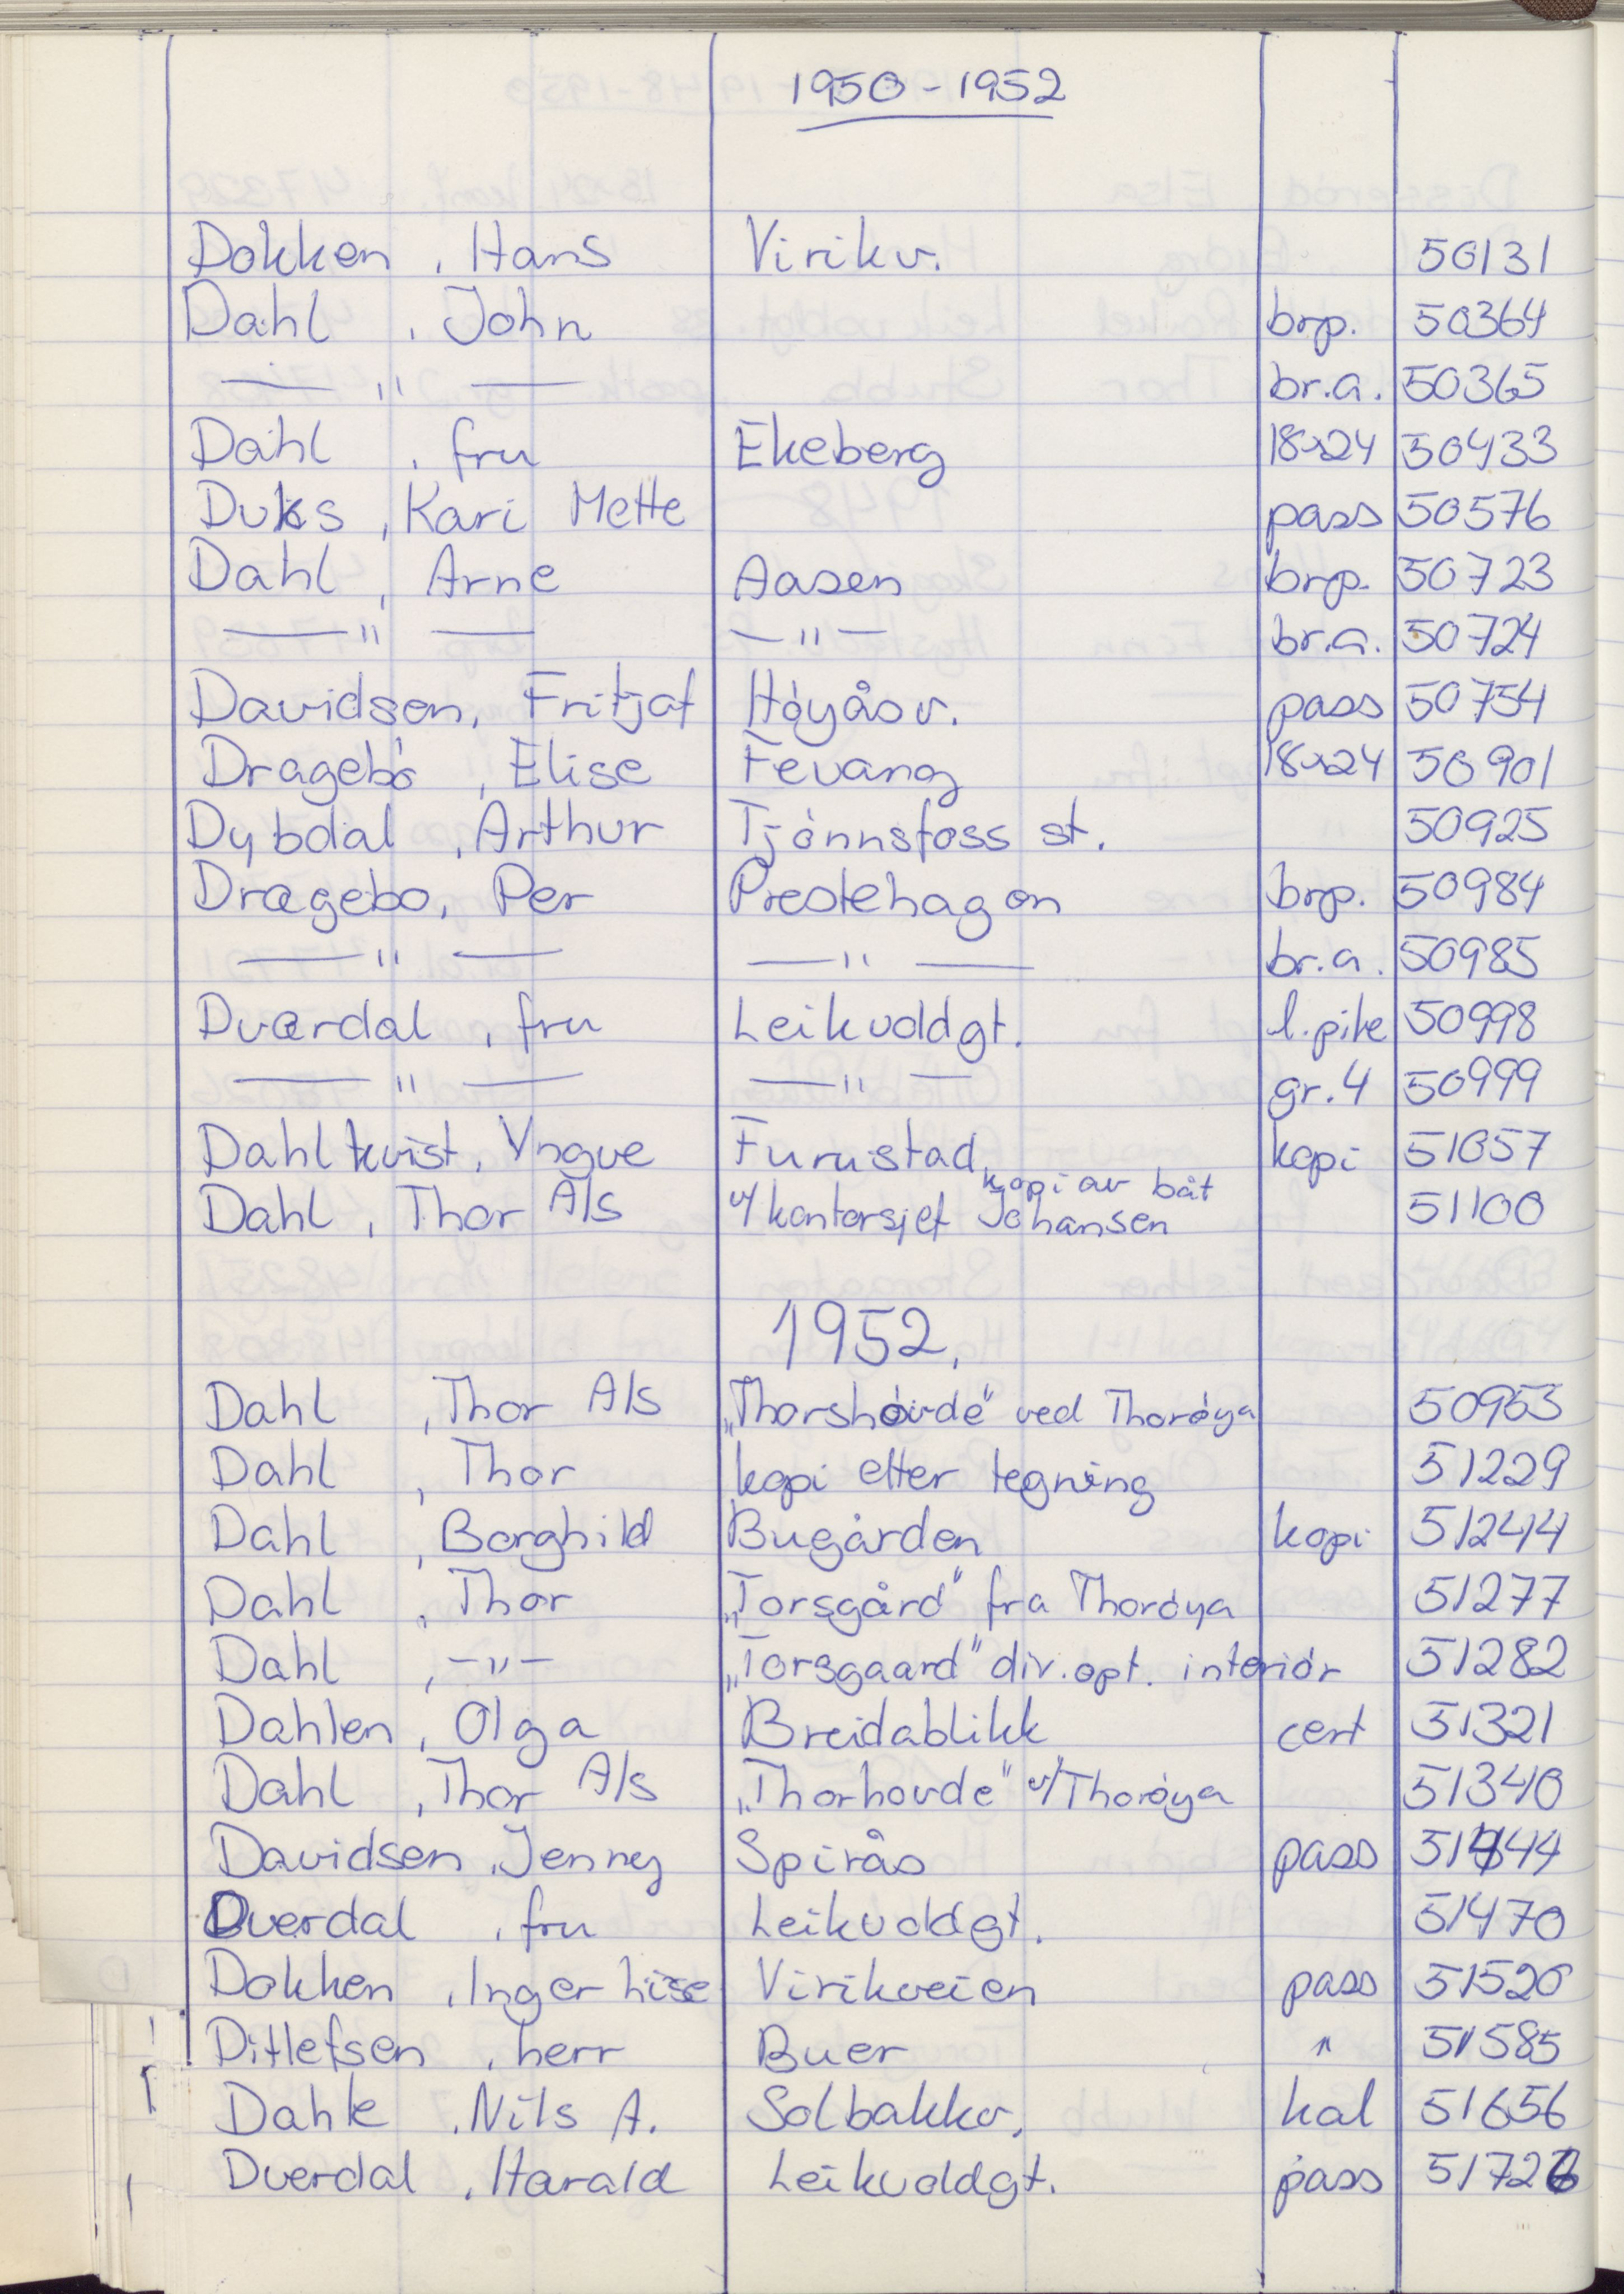 1950-1952
Dokken, Hans Virikv. 50131
Dahl, John brp. 50364
— " — br.a. 50365
Dahl, fru Ekeberg 18x24 50433
Duks, Kari Mette pass 50576
Dahl, Arne Aasen brp. 50723
— " — — " — br.a. 50724
Davidsen, Fritjof Høyåsv. pass 50754
Dragebø, Elise Fevang 18x24 50901
Dybdal, Arthur Tjønnsfoss st. 50925
Dragebo, Per Prestehagen brp. 50984
— " — — " — br.a. 50985
Dværdal, fru Leikvollgt. l.pike 50998
— " — — " — gr.4 50999
Dahlkvist, Yngve Furustad kopi 51057
kopi av båt
Dahl, Thor A/s v/kontorsjef Johansen 51100
1952.
Dahl, Thor A/s „Thorshøvde" ved Thorøya 50953
Dahl, Thor kopi etter tegning 51229
Dahl, Borghild Bugården kopi 51244
Dahl, Thor „Torsgård" fra Thorøya 51277
Dahl, -"- „Torsgaard" div. opt. interiør 51282
Dahlen, Olga Breidablikk cert 51321
Dahl, Thor A/s „Thorhovde" v/Thorøya 51340
Davidsen, Jenny Spirås pass 51444
Dverdal, fru Leikvollgt. 51470
Dokken, Inger Lise Virikveien pass 51520
Ditlefsen, herr Buer " 51585
Dahle, Nils A. Solbakkv. kal 51656
Dverdal, Harald Leikvollgt. pass 51726